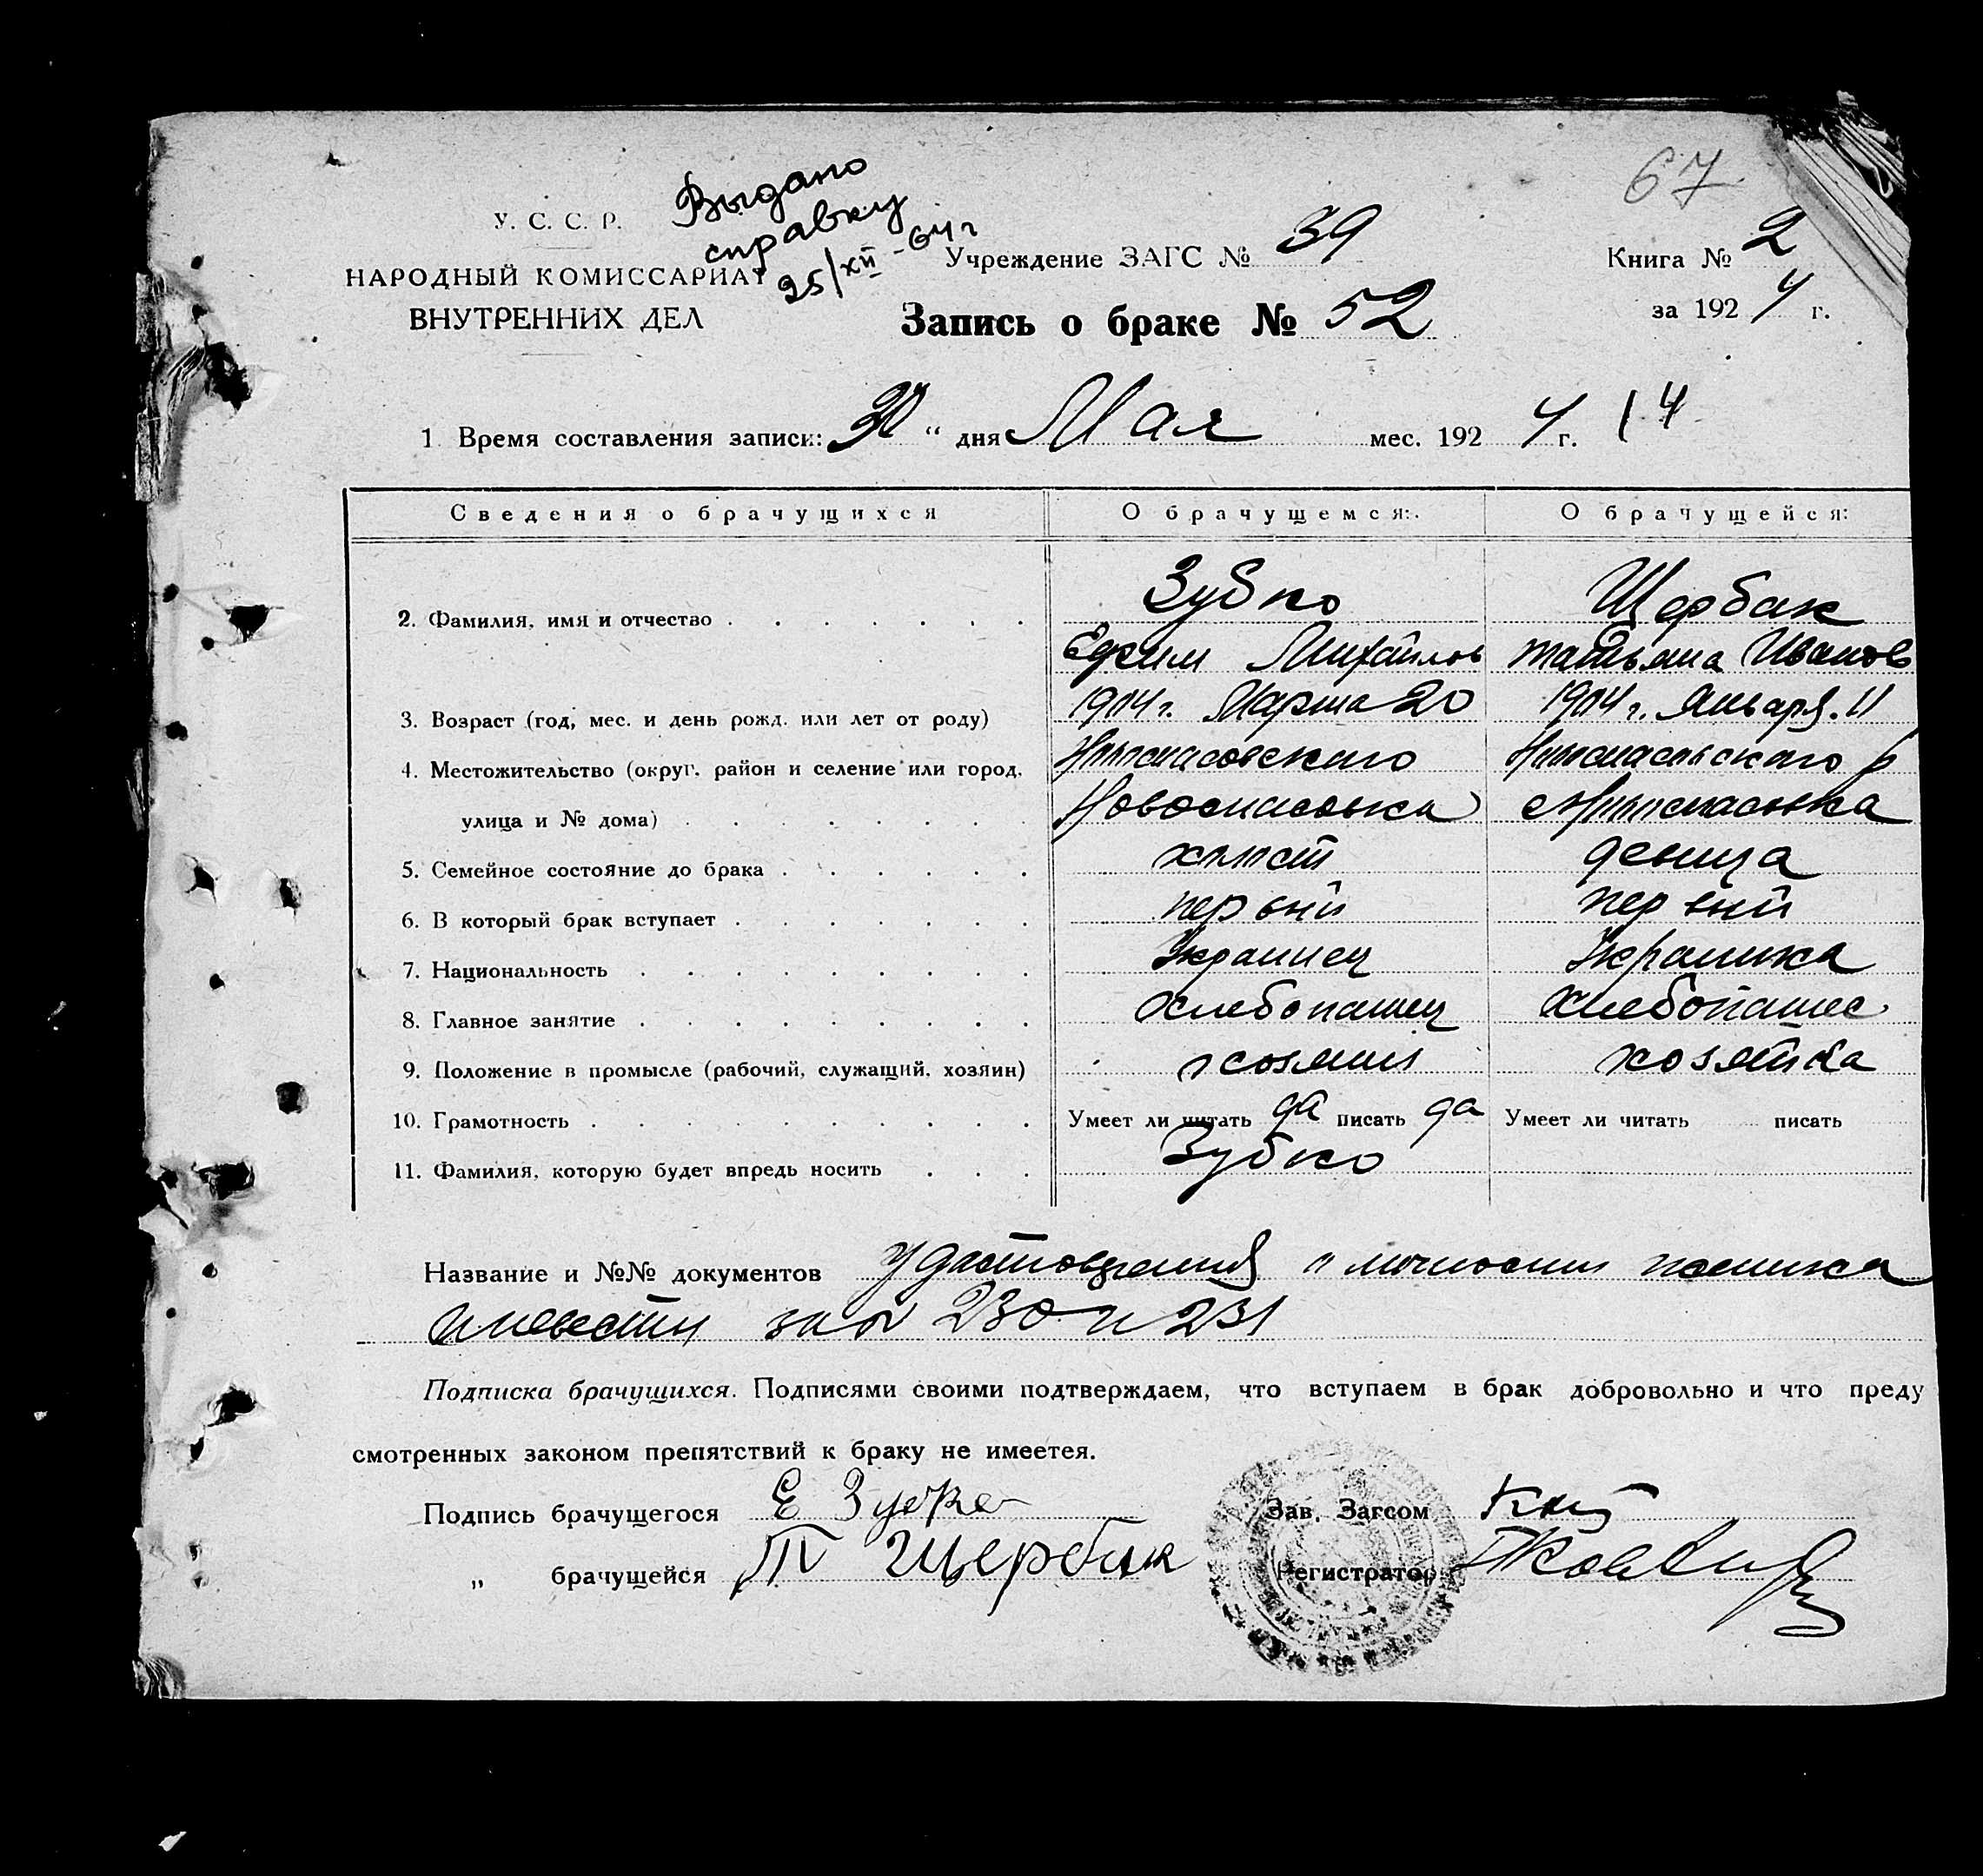 67
Выдано
справку
25/XII-64 г
У. С. С. Р.
НАРОДНЫЙ КОМИССАРИАТ
ВНУТРЕННИХ ДЕЛ
Учреждение ЗАГС № 39
Книга № 2
за 1924 г.
Запись о браке № 52
1 Время составления записи: 30 " дня Мая мес. 1924 г. 14
Сведения о брачущихся О брачущемся: О брачущейся:
Зубко Щербак
2. Фамилия, имя и отчество
Ефим Михайлов Татьяна Иванов
3. Возраст (год, мес. и день рожд. или лет от роду) 1904 г. Марта 20 1904 г. Января 11
4. Местожительство (округ, район и селение или город, Новоспасовского Новоспасовского р
улица и № дома) Новоспасовка с Новоспасовка
5. Семейное состояние до брака холост девица
6. В который брак вступает первый первый
7. Национальность Украинец Украинка
8. Главное занятие хлебопашец хлебопашес
9. Положение в промысле (рабочий, служащий, хозяин) хозяин хозяйка
10. Грамотность Умеет ли читать да писать да Умеет ли читать писать
11. Фамилия, которую будет впредь носить Зубко
Название и №№ документов Удостоверения о личности жениха
и невесты за № 230 и 231
Подписка брачущихся. Подписями своими подтверждаем, что вступаем в брак добровольно и что преду
смотренных законом препятствий к браку не имеется.
Подпись брачущегося Е Зубко Зав. Загсом
" брачущейся Т Щербак Регистратор